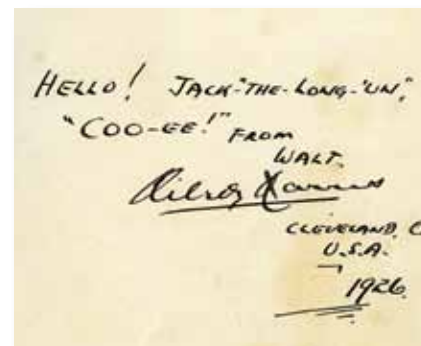 HELLO! JACK-"THE-LONG-'UN",
"COO-EE!" FROM
WALT.
CLEVELAND, O
U.S.A.
1926.